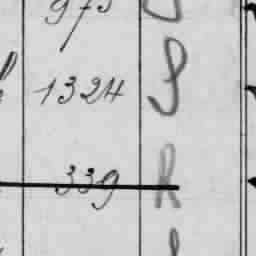 973
1324 S
339 R